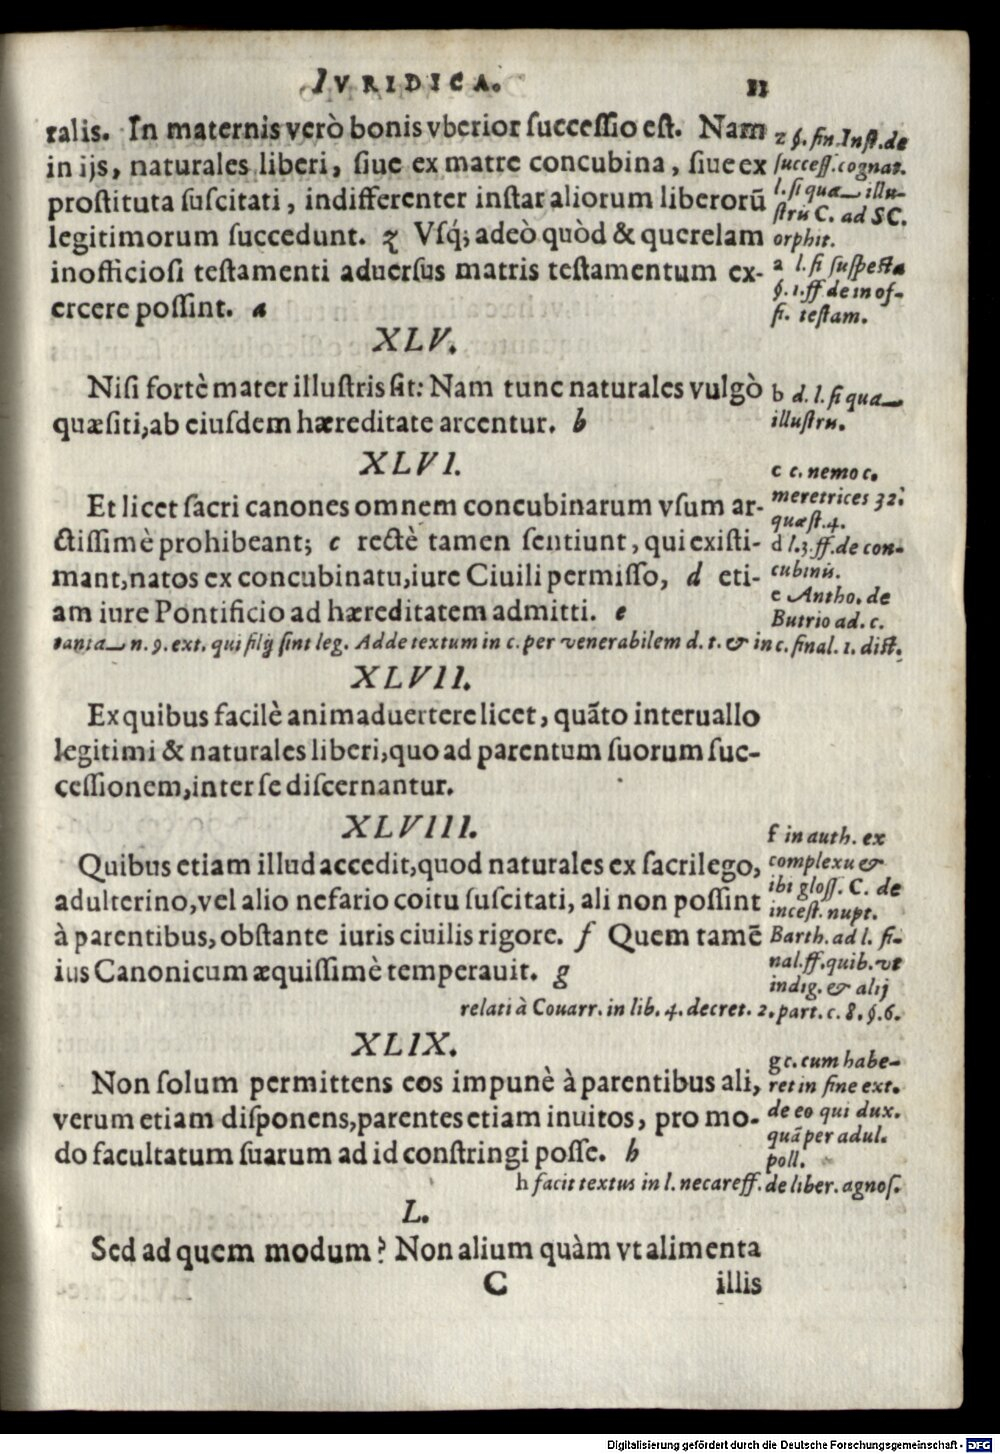 IVRIDICA. 11
ralis. In maternis verò bonis vberior successio est. Nam
in ijs, naturales liberi, siue ex matre concubina, siue ex
prostituta suscitati, indifferenter instar aliorum liberorũ
legitimorum succedunt. z Vsq́; adeò quòd & querelam
inofficiosi testamenti aduersus matris testamentum ex-
ercere possint. a
z §. fin. Inst. de
success. cognat.
l. si qua illu-
strũ C. ad SC.
orphit.
a l. si suspecta
§. 1. ff de inof-
fi. testam.
XLV.
Nisi fortè mater illustris sit: Nam tunc naturales vulgò
quæsiti, ab eiusdem hæreditate arcentur. b
b d. l. si qua
illustru.
XLVI.
Et licet sacri canones omnem concubinarum vsum ar-
ctissimè prohibeant; c rectè tamen sentiunt, qui existi-
mant, natos ex concubinatu, iure Ciuili permisso, d eti-
am iure Pontificio ad hæreditatem admitti. e
c c. nemo c.
meretrices 32.
quæst. 4.
d l. 3. ff. de con-
cubinis.
e Antho. de
Butrio ad. c.
tanta n. 9. ext. qui filij sint leg. Adde textum in c. per venerabilem d. t. & in c. final. 1. dist.
XLVII.
Ex quibus facilè animaduertere licet, quãto interuallo
legitimi & naturales liberi, quo ad parentum suorum suc-
cessionem, inter se discernantur.
XLVIII.
Quibus etiam illud accedit, quod naturales ex sacrilego,
adulterino, vel alio nefario coitu suscitati, ali non possint
à parentibus, obstante iuris ciuilis rigore. f Quem tamẽ
ius Canonicum æquissimè temperauit. g
f in auth. ex
complexu &
ibi gloss. C. de
incest. nupt.
Barth. ad l. fi-
nal. ff. quib. vt
indig. & alij
relati à Couarr. in lib. 4. decret. 2. part. c. 8. §. 6.
XLIX.
Non solum permittens eos impunè à parentibus ali,
verum etiam disponens, parentes etiam inuitos, pro mo-
do facultatum suarum ad id constringi posse. h
g c. cum habe-
ret in fine ext.
de eo qui dux.
quã per adul.
poll.
h facit textus in l. necare ff. de liber. agnos.
L.
Sed ad quem modum? Non alium quàm vt alimenta
C illis
Digitalisierung gefördert durch die Deutsche Forschungsgemeinschaft - DFG